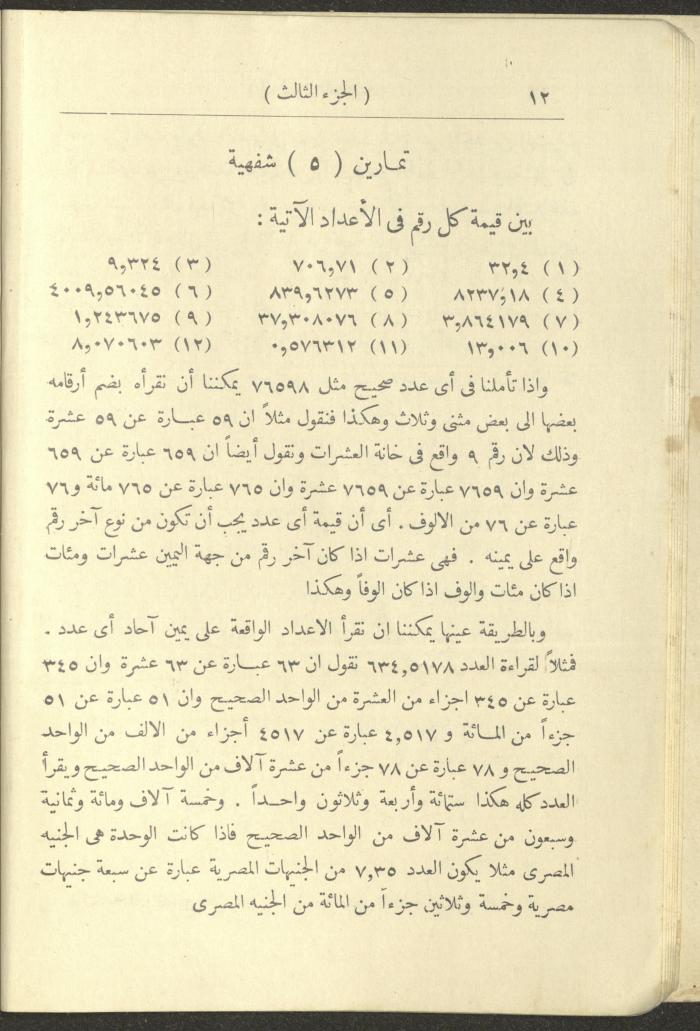 ١٢ ( الجزء الثالث )
تمارين ( ٥ ) شفهية
بين قيمة كل رقم فى الأعداد الآتية :
( ١ ) ٣٢,٤ ( ٢ ) ٧٠٦,٧١ ( ٣ ) ٩,٣٢٤
( ٤ ) ٨٢٣٧,١٨ ( ٥ ) ٨٣٩,٦٢٧٣ ( ٦ ) ٤٠٠٩,٥٦٠٤٥
( ٧ ) ٣,٨٦٤١٧٩ ( ٨ ) ٣٧,٣٠٨٠٧٦ ( ٩ ) ١,٢٤٣٦٧٥
(١٠) ١٣,٠٠٦ (١١) ٠,٥٧٦٣١٢ (١٢) ٨,٠٧٠٦٠٣
واذا تأملنا فى أى عدد صحيح مثل ٧٦٥٩٨ يمكننا أن نقرأه بضم أرقامه
بعضها الى بعض مثنى وثلاث وهكذا فنقول مثلاً ان ٥٩ عبارة عن ٥٩ عشرة
وذلك لان رقم ٩ واقع فى خانة العشرات ونقول أيضاً ان ٦٥٩ عبارة عن ٦٥٩
عشرة وان ٧٦٥٩ عبارة عن ٧٦٥٩ عشرة وان ٧٦٥ عبارة عن ٧٦٥ مائة و٧٦
عبارة عن ٧٦ من الالوف . أى أن قيمة أى عدد يجب أن تكون من نوع آخر رقم
واقع على يمينه . فهى عشرات اذا كان آخر رقم من جهة اليمين عشرات ومئات
اذا كان مئات والوف اذا كان الوفاً وهكذا
وبالطريقة عينها يمكننا ان نقرأ الاعداد الواقعة على يمين آحاد أى عدد .
فمثلاً لقراءة العدد ٦٣٤,٥١٧٨ نقول ان ٦٣ عبارة عن ٦٣ عشرة وان ٣٤٥
عبارة عن ٣٤٥ اجزاء من العشرة من الواحد الصحيح وان ٥١ عبارة عن ٥١
جزءاً من المائة و ٤,٥١٧ عبارة عن ٤٥١٧ أجزاء من الالف من الواحد
الصحيح و ٧٨ عبارة عن ٧٨ جزءاً من عشرة آلاف من الواحد الصحيح ويقرأ
العدد كله هكذا ستمائة وأربعة وثلاثون واحداً . وخمسة آلاف ومائة وثمانية
وسبعون من عشرة آلاف من الواحد الصحيح فاذا كانت الوحدة هى الجنيه
المصرى مثلا يكون العدد ٧,٣٥ من الجنيهات المصرية عبارة عن سبعة جنيهات
مصرية وخمسة وثلاثين جزءاً من المائة من الجنيه المصرى